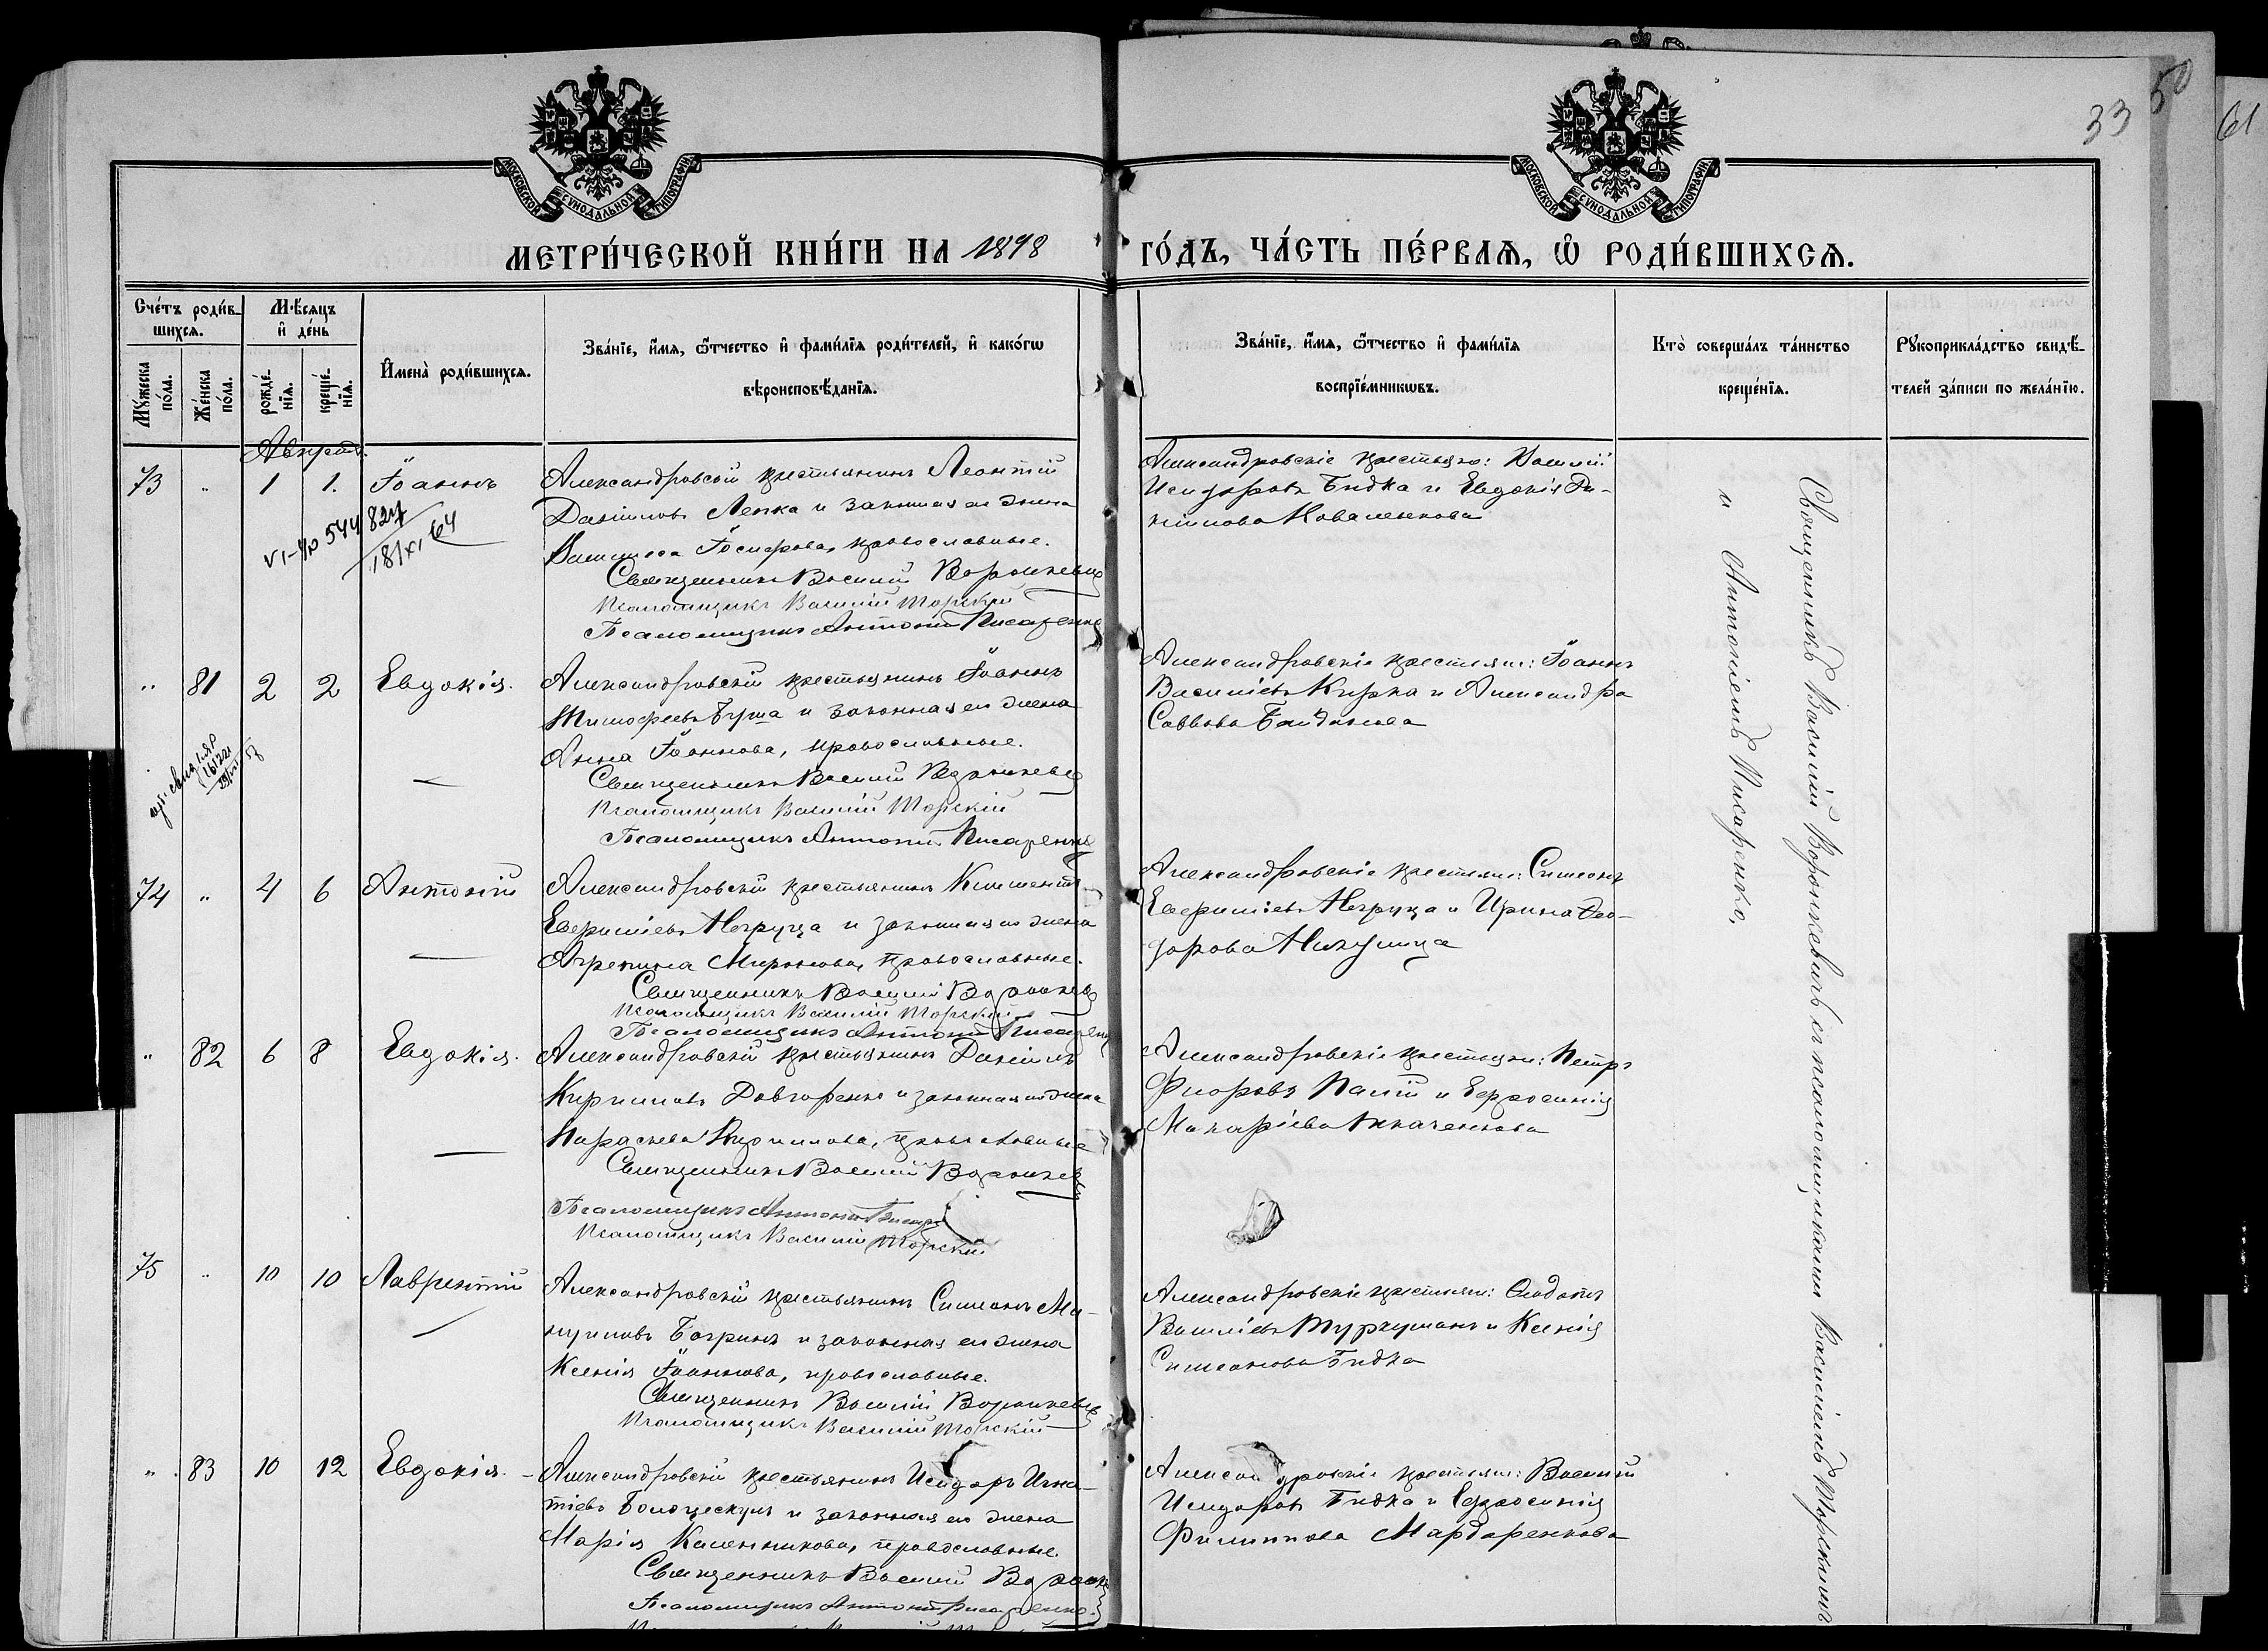 33
50
61
МОСКОВСКОЙ СУНОДАЛЬНОЙ ТИПОГРАФІИ
МОСКОВСКОЙ СУНОДАЛЬНОЙ ТИПОГРАФІИ
МЕТРИ́ЧЕСКОЙ КНИ́ГИ НА 1898 ГО́ДЪ, ЧА́СТЬ ПЕ́РВАѦ, Ѡ҆ РОДИ́ВШИХСѦ.
Сче́тъ роди́в-
шихсѧ.
Мꙋ́жеска по́ла.
Же́нска по́ла.
Мѣ́сѧцъ
и҆ де́нь
рожде́-
нїѧ.
креще́-
нїѧ.
И҆мена̀ роди́вшихсѧ.
Зва́нїе, и҆́мѧ, ѻ҆́тчество и҆ фами́лїѧ роди́телей, и҆ како́гѡ
вѣроисповѣ́данїѧ.
Зва́нїе, и҆́мѧ, ѻ҆́тчество и҆ фами́лїѧ
воспрїе́мникѡвъ.
Кто̀ соверша́лъ та́инство
креще́нїѧ.
Рꙋкоприкла́дство свидѣ́-
телей за́писи по жела́нїю.
Августъ.
73 " 1 1. Іоаннъ
Александровскій крестьянинъ Леонтій
Даніиловъ Лепка и законная его жена
Іосифова, православные.
Священникъ Василій Воронкевичъ
Псаломщикъ Василій Торскій
Псаломщикъ Антоній Писаренко
Александровскіе крестьяне: Василій
Исидоровъ Гидка и Евдокія Да-
ніилова Коваленкова
" 81 2 2 Евдокія.
Александровскій крестьянинъ Іоаннъ
Тимофеевъ Буша и законная его жена
Анна Іоаннова, православные.
Священникъ Василій Воронкевичъ
Псаломщикъ Василій Торскій
Псаломщикъ Антоній Писаренко
Александровскіе крестьяне: Іоаннъ
Василіевъ Кирка и Александра
Саввова
74 " 4 6 Антоній
Александровскій крестьянинъ Климентъ
Негруца и законная его жена
Агрепина Миронова, православные.
Священникъ Василій Воронкевичъ
Псаломщикъ Василій Торскій
Псаломщикъ Антоній Писаренко
Александровскіе крестьяне: Симеонъ
Негруца и Ирина Ѳео-
дорова
" 82 6 8 Евдокія.
Александровскій крестьянинъ Даніилъ
Кирилловъ Довгоренко и законная его жена
Параскева Кириллова, православные
Священникъ Василій Воронкевичъ
Псаломщикъ Антоній
Псаломщикъ Василій Торскій
Александровскіе крестьяне: Петръ
Флоровъ Палій и Евфросинія
Макаріева Ткаченкова
75 " 10 10 Лаврентій
Александровскій крестьянинъ Симеонъ Ма-
нуиловъ Багринъ и законная его жена
Ксенія Іоаннова, православные.
Священникъ Василій Воронкевичъ
Псаломщикъ Василій Торскій
Александровскіе крестьяне: Ѳеодотъ
Василіевъ Туркуманъ и Ксенія
Симеонова Гидка
" 83 10 12 Евдокія.
Александровскій крестьянинъ Исидоръ Игна-
тіевъ и законная его жена
Марія Калинникова, православные.
Священникъ Василій
Псаломщикъ Антоній Писаренко.
Александровскіе крестьяне: Василій
Исидоровъ Гидка и Евфросинія
Филиппова Мардаренкова
Священникъ Василій Воронкевичъ съ псаломщиками Василіемъ Торскимъ
и Антоніемъ Писаренко.